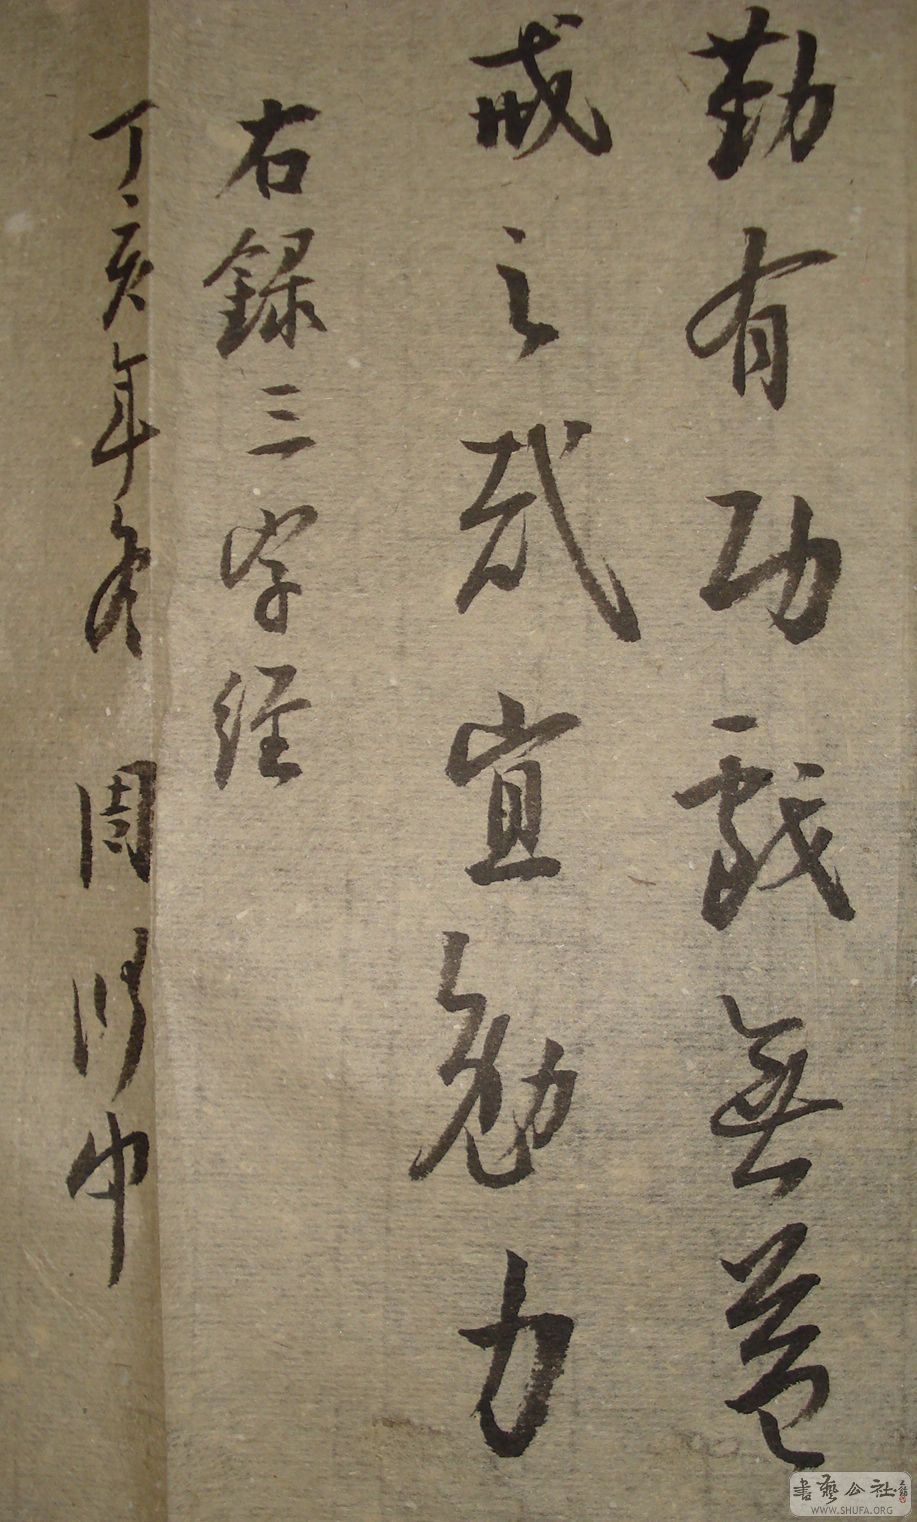 勤有功戲無益
戒之哉宜勉力
右錄三字經
丁亥年冬 周 中
書藝公社
WWW.SHUFA.ORG